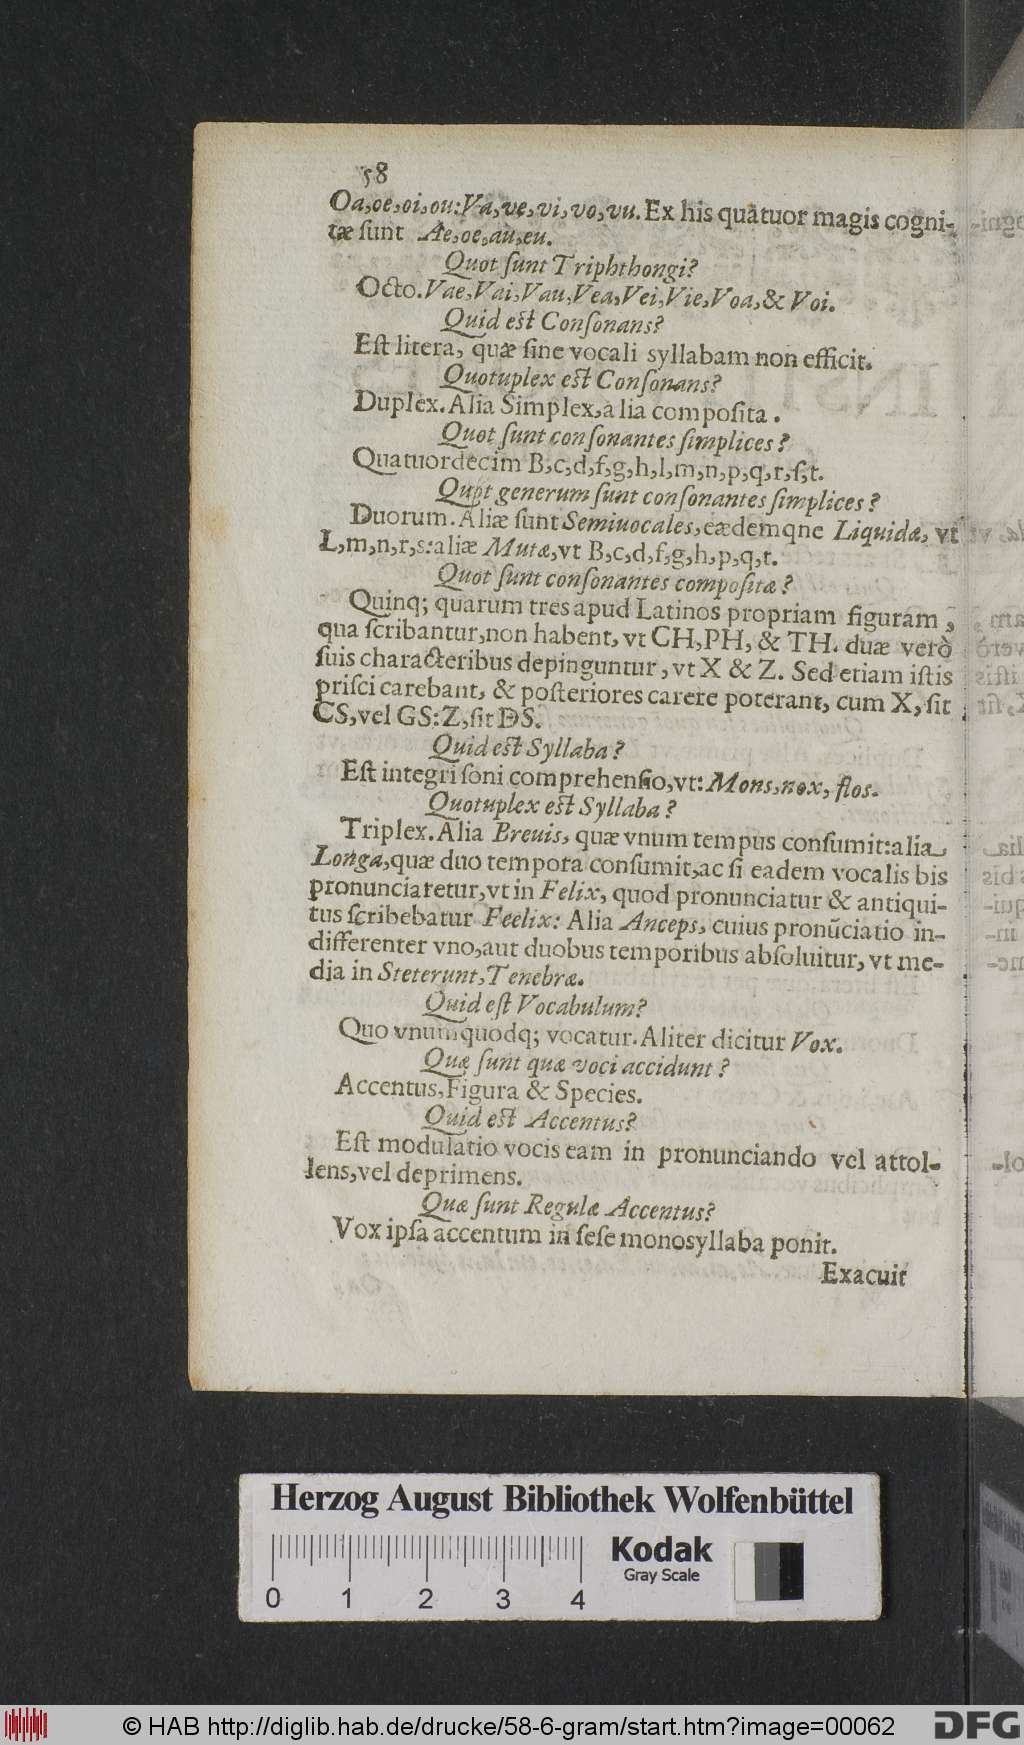 58
Oa,oe,oi,ou: Va,ve,vi,vo,vu. Ex his quatuor magis cogni-
tæ ſunt Ae,oe,au,eu.
Quot ſunt Triphthongi?
Octo. Vae, Vai, Vau, Vea, Vei, Vie, Voa, & Voi.
Quid est Conſonans?
Eſt litera, quæ ſine vocali syllabam non efficit.
Quotuplex est Conſonans?
Duplex. Alia Simplex, alia compoſita.
Quot ſunt conſonantes ſimplices?
Quatuordecim B,c,d,f,g,h,l,m,n,p,q,r,ſ,t.
Quot generum ſunt conſonantes ſimplices?
Duorum. Aliæ ſunt Semiuocales, eædemqne Liquidæ, vt
L,m,n,r,s: aliæ Mutæ, vt B,c,d,f,g,h,p,q,t.
Quot ſunt conſonantes compoſitæ?
Quinq; quarum tres apud Latinos propriam figuram,
qua ſcribantur, non habent, vt CH, PH, & TH. duæ verò
ſuis characteribus depinguntur, vt X & Z. Sed etiam iſtis
priſci carebant, & poſteriores carere poterant, cum X, ſit
CS, vel GS: Z, ſit DS.
Quid est Syllaba?
Eſt integri ſoni comprehenſio, vt: Mons, nox, flos.
Quotuplex est Syllaba?
Triplex. Alia Breuis, quæ vnum tempus conſumit: alia
Longa, quæ duo tempora conſumit, ac ſi eadem vocalis bis
pronunciaretur, vt in Felix, quod pronunciatur & antiqui-
tus ſcribebatur Feelix: Alia Anceps, cuius pronũciatio in-
differenter vno, aut duobus temporibus abſoluitur, vt me-
dia in Steterunt, Tenebræ.
Quid eſt Vocabulum?
Quo vnumquodq; vocatur. Aliter dicitur Vox.
Quæ ſunt quæ voci accidunt?
Accentus, Figura & Species.
Quid est Accentus?
Eſt modulatio vocis eam in pronunciando vel attol-
lens, vel deprimens.
Quæ ſunt Regulæ Accentus?
Vox ipſa accentum in ſeſe monosyllaba ponit.
Exacuit
Herzog August Bibliothek Wolfenbüttel
0 1 2 3 4
Kodak
Gray Scale
© HAB http://diglib.hab.de/drucke/58-6-gram/start.htm?image=00062
DFG